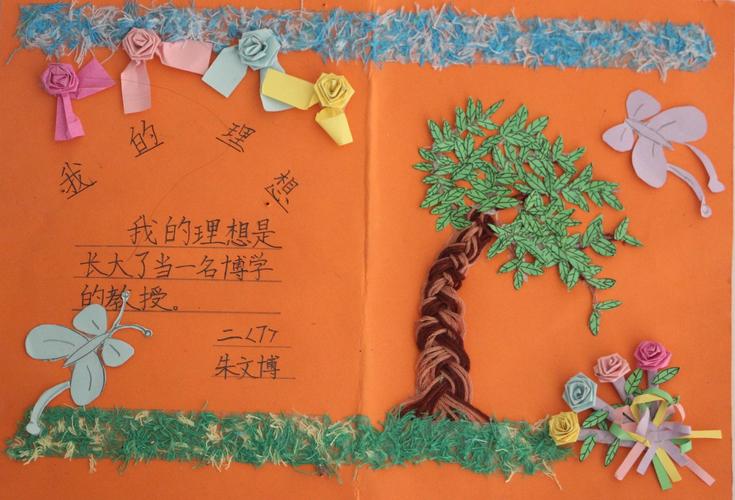 我的理想
我的理想是
长大了当一名博学
的教授。
二〈7〉
朱文博